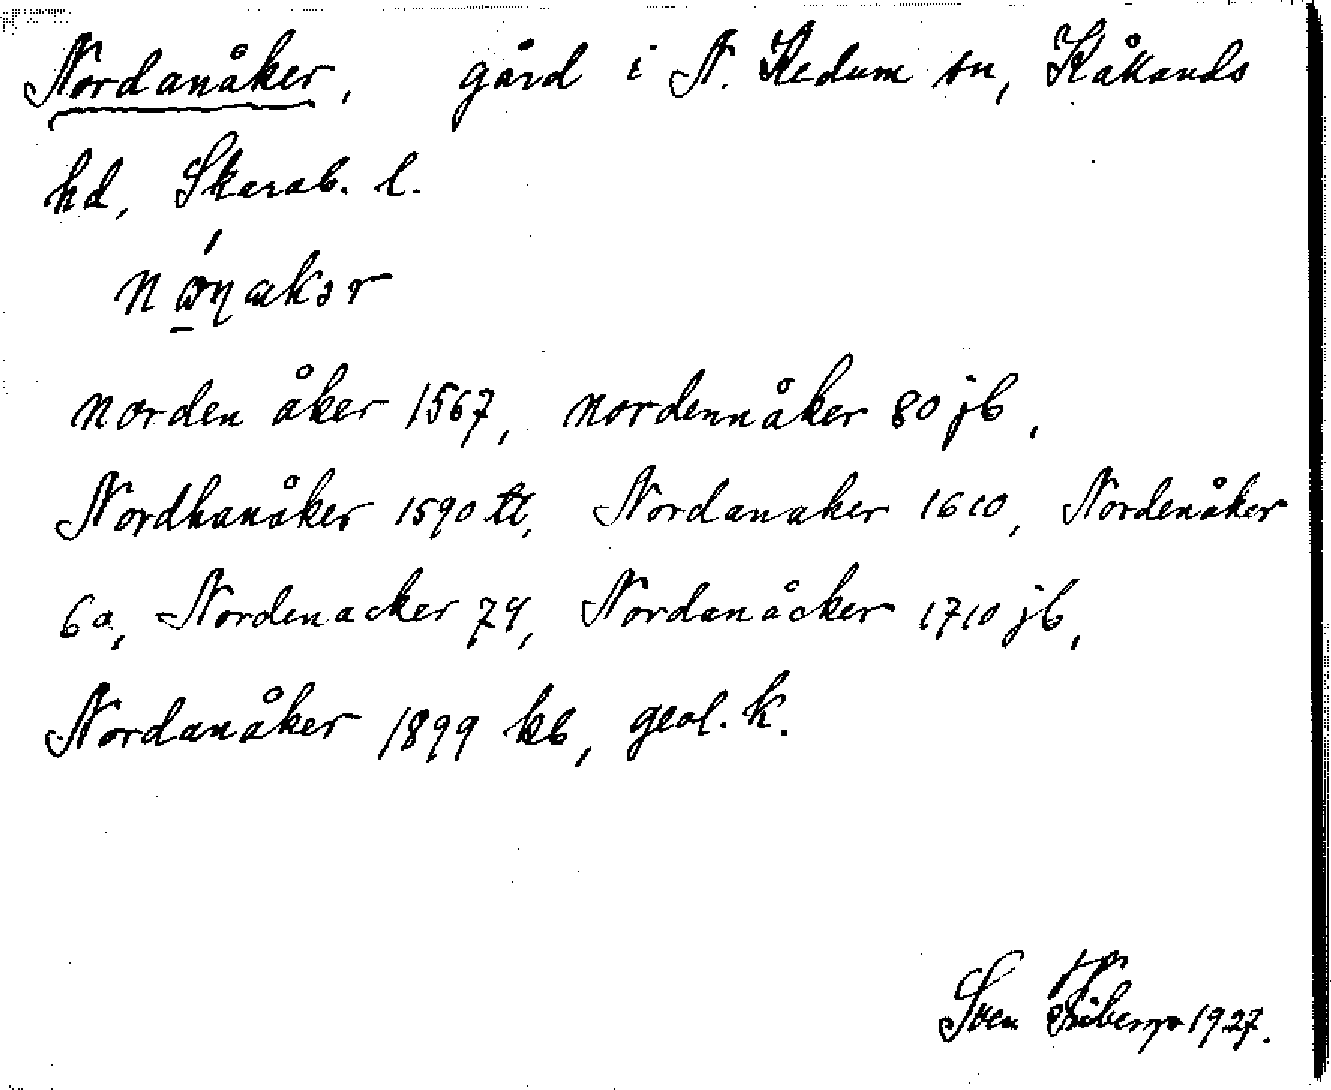 Nordanåker, gård i N. Kedum sn, Kåkands
hd, Skarab. l.
norden åker 1567, nordennåker 80 jb,
Nordhanåker 1590 tl, Nordanaker 1610, Nordenåker
60, Nordenacker 79, Nordanåcker 1710 jb,
Nordanåker 1899 kb, geol. k.
Sven Fribergr 1927.